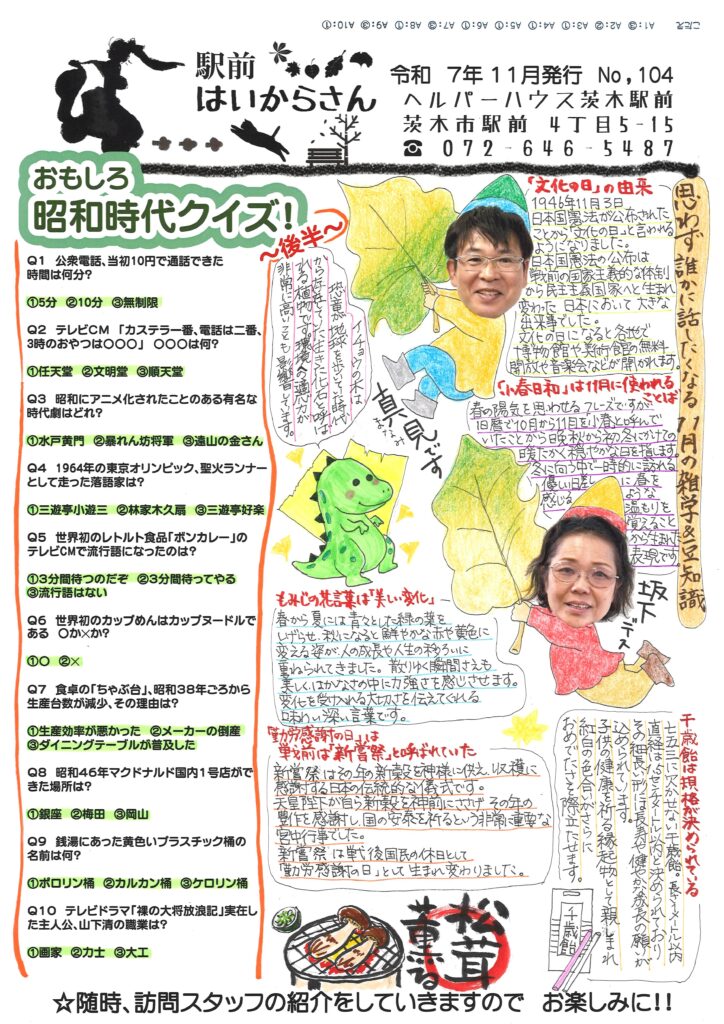 こたえ A1:③ A2:② A3:① A4:① A5:① A6:① A7:③ A8:① A9:③ A10:①
駅前
はいからさん
令和 7年11月発行 No,104
ヘルパーハウス茨木駅前
茨木市駅前 4丁目5-15
☎ 072-646-5487
おもしろ
昭和時代クイズ!
~後半~
Q1 公衆電話、当初10円で通話できた
時間は何分?
①5分 ②10分 ③無制限
Q2 テレビCM 「カステラ一番、電話は二番、
3時のおやつは〇〇〇」 〇〇〇は何?
①任天堂 ②文明堂 ③順天堂
Q3 昭和にアニメ化されたことのある有名な
時代劇はどれ?
①水戸黄門 ②暴れん坊将軍 ③遠山の金さん
Q4 1964年の東京オリンピック、聖火ランナー
として走った落語家は?
①三遊亭小遊三 ②林家木久扇 ③三遊亭好楽
Q5 世界初のレトルト食品「ボンカレー」の
テレビCMで流行語になったのは?
①3分間待つのだぞ ②3分間待ってやる
③流行語はない
Q6 世界初のカップめんはカップヌードルで
ある 〇か×か?
①〇 ②×
Q7 食卓の「ちゃぶ台」、昭和38年ごろから
生産台数が減少、その理由は?
①生産効率が悪かった ②メーカーの倒産
③ダイニングテーブルが普及した
Q8 昭和46年マクドナルド国内1号店がで
きた場所は?
①銀座 ②梅田 ③岡山
Q9 銭湯にあった黄色いプラスチック桶の
名前は何?
①ポロリン桶 ②カルカン桶 ③ケロリン桶
Q10 テレビドラマ「裸の大将放浪記」実在し
た主人公、山下清の職業は?
①画家 ②力士 ③大工
思わず誰かに話したくなる11月の雑学&豆知識
「文化の日」の由来
1946年11月3日、
日本国憲法が公布された
ことから「文化の日」と言われる
ようになりました。
日本国憲法の公布は
戦前の国家主義的な体制
から民主主義国家へと生まれ
変わった日本において大きな
出来事でした。
文化の日になると各地で
博物館や美術館の無料
開放や音楽会などが開かれます。
イチョウの木は
恐竜が地球を歩いていた時代
から存在していた「生きた化石」と呼ば
れる植物です。環境への適応力が
非常に高いことも影響しています。
真見です
まなみ
「小春日和」は11月に使われる
ことば
春の陽気を思わせるフレーズですが、
旧暦で10月から11月を小春と呼んで
いたことから晩秋から初冬にかけての
暖かく穏やかな日を指します。
冬に向う中で一時的に訪れる
優しい日差しに春を
感じるような
温もりを
覚えること
から生まれた
表現です。
坂下デス
もみじの花言葉は「美しい変化」
春から夏には青々とした緑の葉を
しげらせ、秋になると鮮やかな赤や黄色に
変える姿が、人の成長や人生の移ろいに
重ねられてきました。散りゆく瞬間さえも
美しく、はかなさの中に力強さを感じさせます。
変化を受け入れる大切さを伝えてくれる
味わい深い言葉です。
「勤労感謝の日」は
戦前は「新嘗祭」と呼ばれていた
新嘗祭はその年の新穀を神様に供え、収穫に
感謝する日本の伝統的な儀式です。
天皇陛下が自ら新穀を神前にささげ、その年の
豊作を感謝し、国の安泰を祈るという非常に重要な
宮中行事でした。
新嘗祭は戦後国民の休日として
「勤労感謝の日」として生まれ変わりました。
千歳飴は規格が決められている
七五三に欠かせない千歳飴。長さ1メートル以内
直径1.5センチメートル以内と決められており
その細長い形には長寿や健やかな成長の願いが
込められています。
子供の健康を祈る縁起物として親しまれ
紅白の色合いがさらに
おめでたさを際立たせます。
千歳飴
松茸
☆随時、訪問スタッフの紹介をしていきますので お楽しみに!!